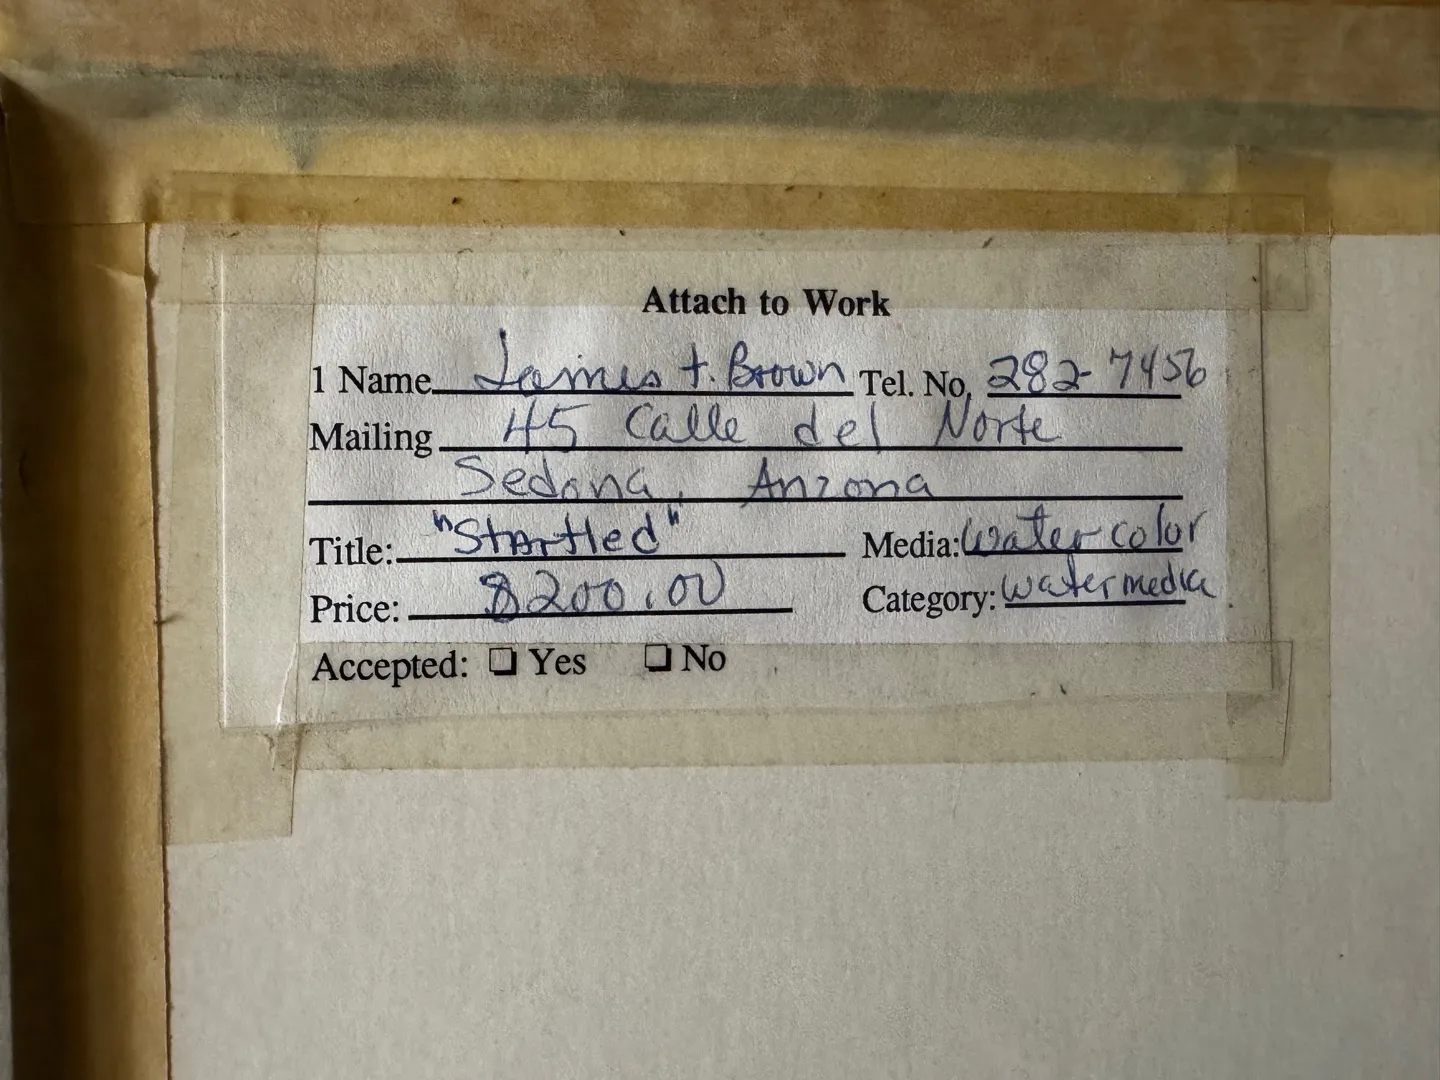 Attach to Work
1 Name James t. Brown Tel. No. 282-7456
Mailing 45 Calle del Norte
Sedona, Arizona
Title: "Startled" Media: Watercolor
Price: $200.00 Category: Watermedia
Accepted: ❑ Yes ❑ No